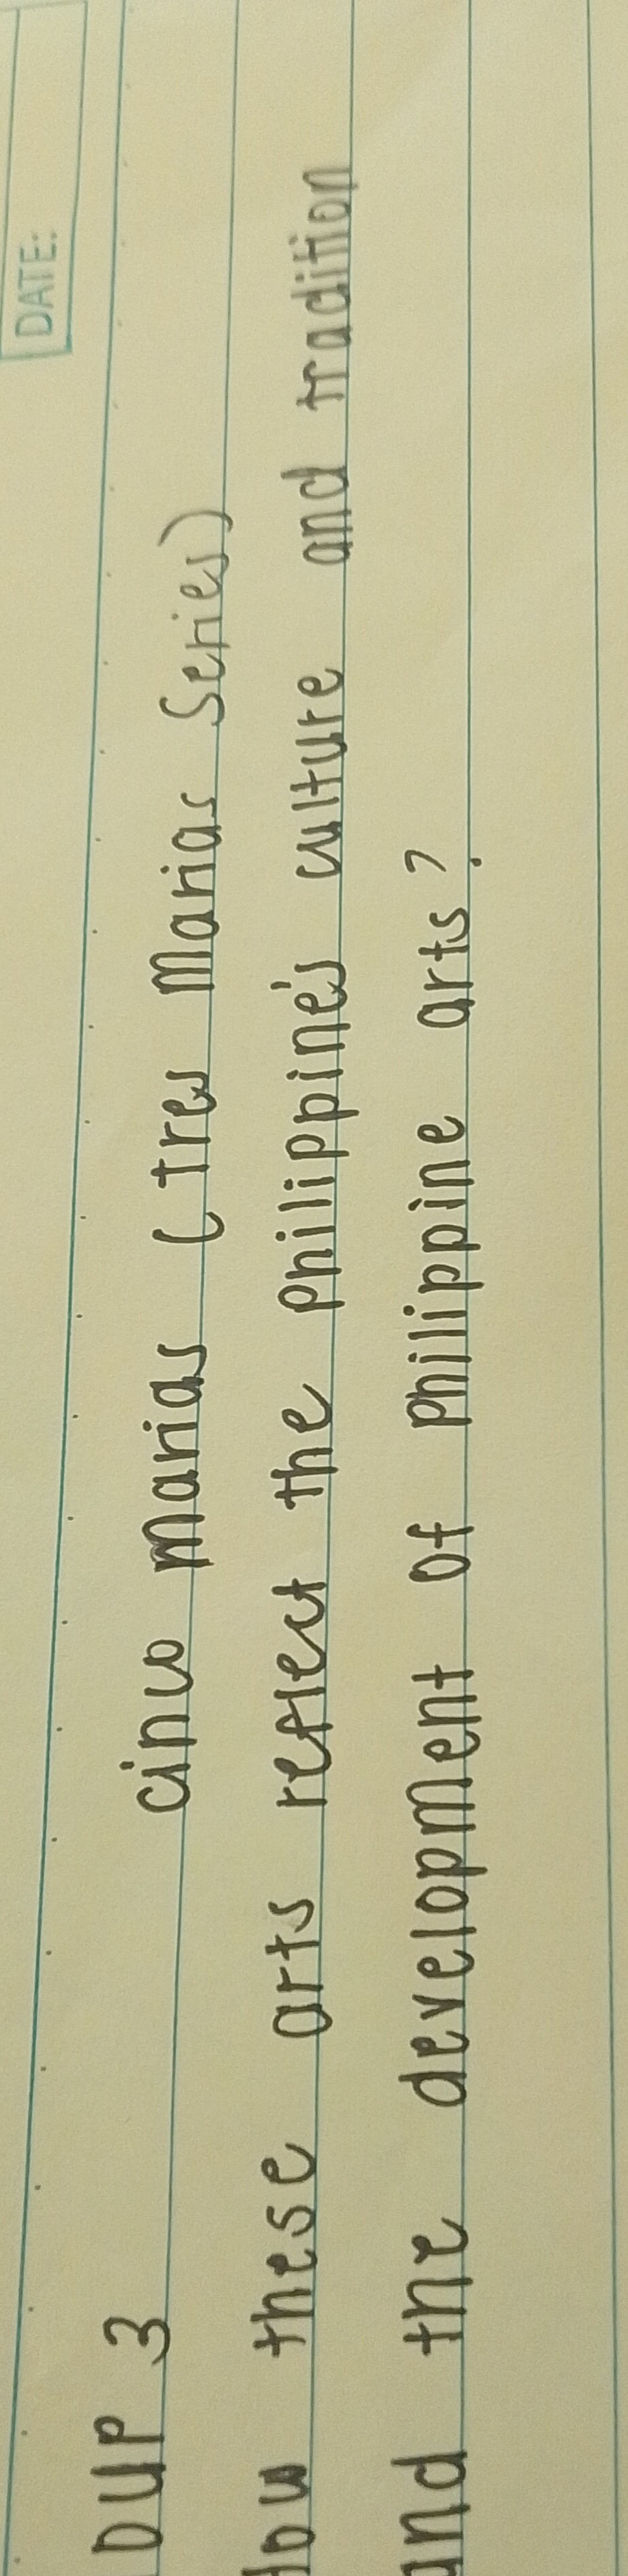 DATE:
oup 3 cinco marias (tres Marias Series)
ow these arts reflect the philippine's culture and tradition
and the development of philippine arts?